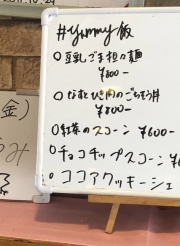 2017.10.29
#yummy飯
○豆乳ごま担々麺
¥800-
○なすとひき肉のごちそう丼
¥800-
○紅茶のスコーン ¥600-
○チョコチップスコーン
○ココアクッキーシェ
金)